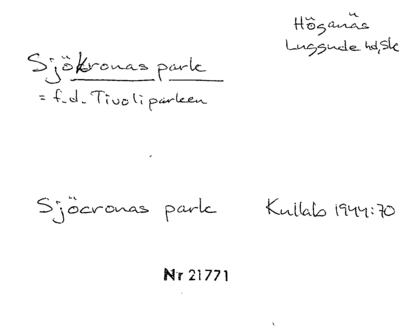 Höganäs
Luggude hd, Sk
Sjökronas park
= f.d. Tivoliparken
Sjöcronas park Kullab 1944:70
Nr 21771